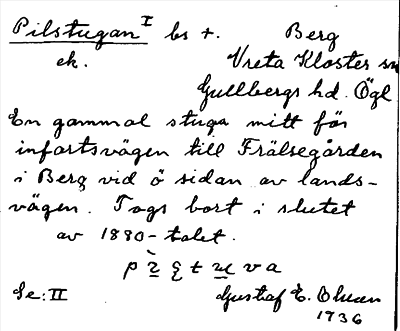 Pilstugan I bs +. Berg
ek. Vreta Kloster sn
Gullbergs hd. Ögl
En gammal stuga mitt för
infartsvägen till Frälsegården
i Berg vid ö sidan av lands-
vägen. Togs bort i slutet
av 1880-talet.
Se: II Gustaf E. Olsson
1936